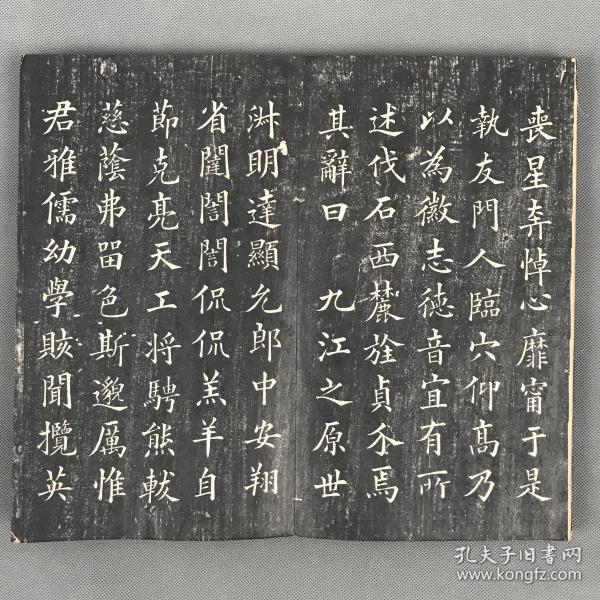 喪星奔悼心靡甯于是
執友門人臨穴仰高乃
以為徽志德音宜有所
述伐石西麓旌貞介焉
其辭曰 九江之原世
淵明達顯允郎中安翔
省闥誾誾侃侃羔羊自
節克亮天工将騁熊軾
慈蔭弗留色斯邈厲惟
君雅儒幼學賅聞攬英
孔夫子旧书网
www.kongfz.com